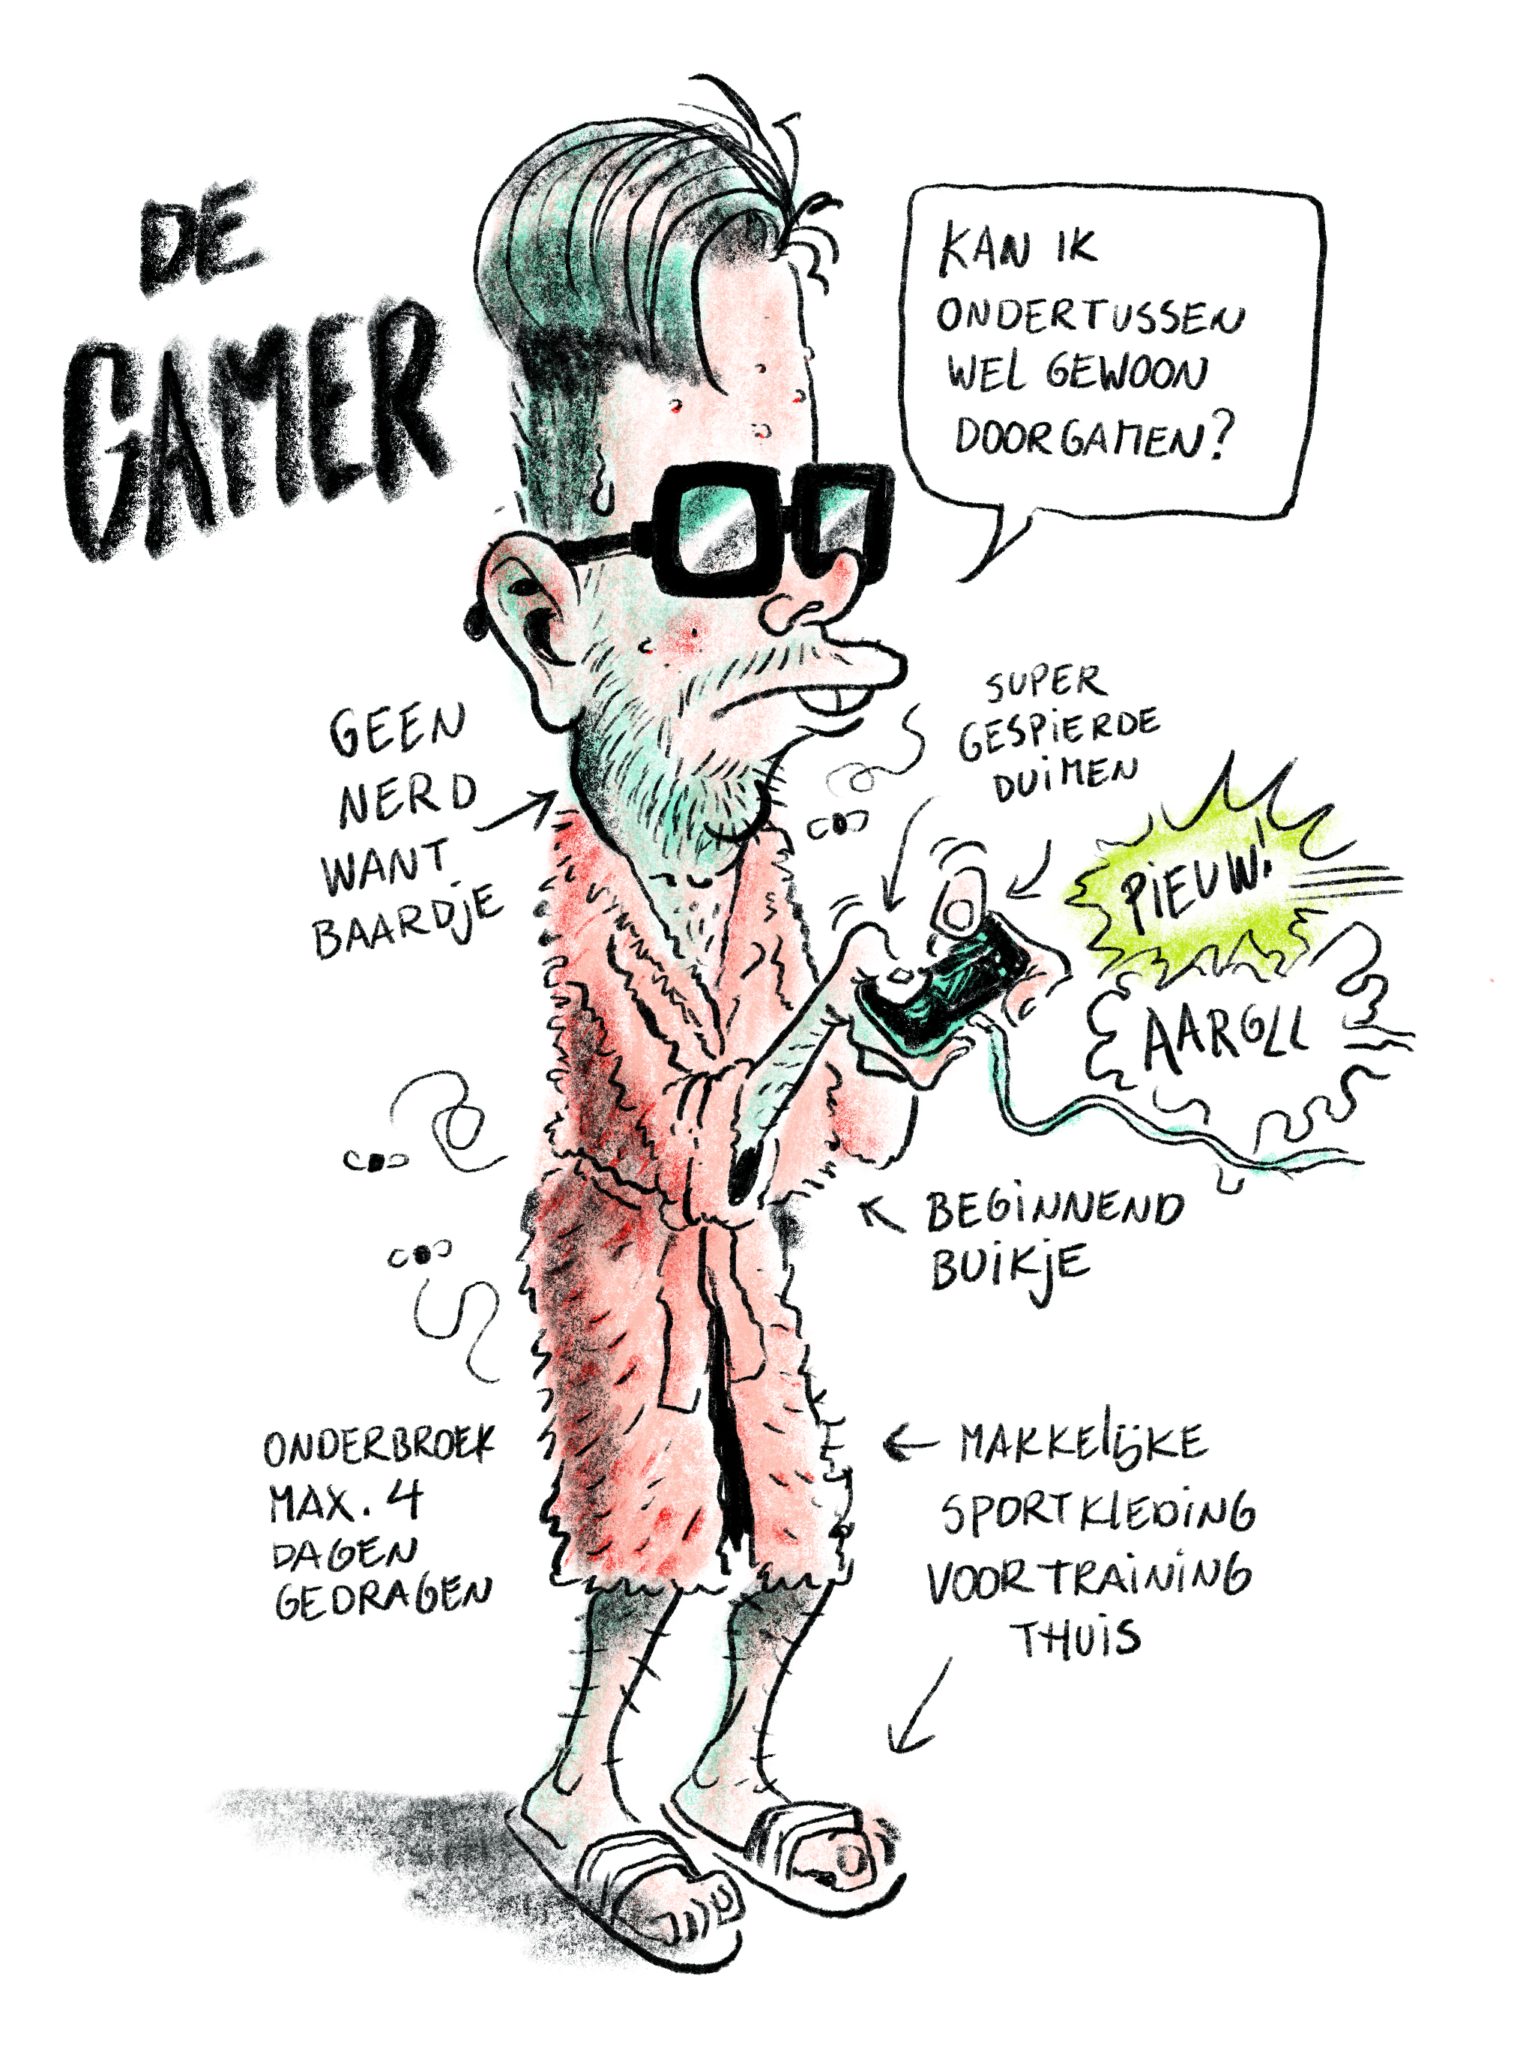 DE
GAMER
KAN IK
ONDERTUSSEN
WEL GEWOON
DOORGAMEN?
SUPER
GESPIERDE
DUIMEN
GEEN
NERD
WANT
BAARDJE
PIEUW!
AARGLL
BEGINNEND
BUIKJE
ONDERBROEK
MAX. 4
DAGEN
GEDRAGEN
MAKKELIJKE
SPORTKLEDING
VOOR TRAINING
THUIS